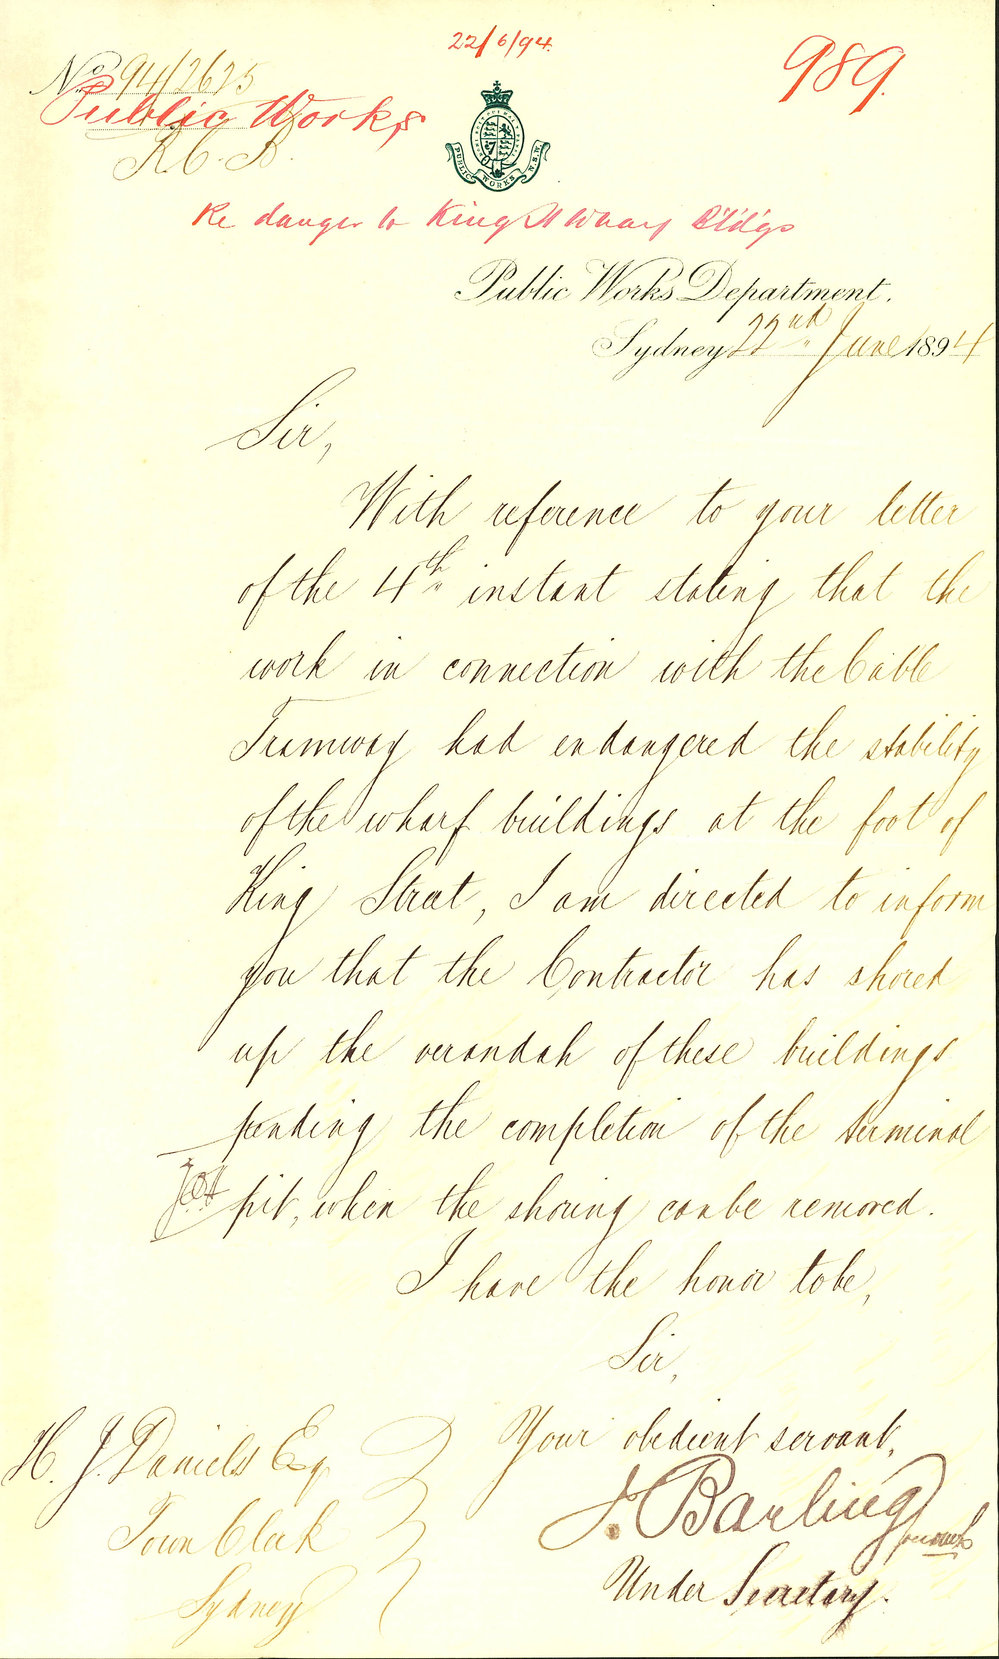 22/6/94.
989.
No. 94/2625
Public Works
R.C.B.
PUBLIC WORKS N.S.W.
Re danger to King St Wharf B'ld'gs
Public Works Department.
Sydney 22nd June 1894
Sir,
With reference to your letter
of the 4th instant stating that the
work in connection with the Cable
Tramway had endangered the stability
of the wharf buildings at the foot of
King Street, I am directed to inform
you that the Contractor has shored
up the verandah of these buildings
pending the completion of the terminal
pit, when the shoring can be removed.
I have the honor to be,
Sir,
Your obedient servant,
J. Barling
Under Secretary.
H. J. Daniels Esq
Town Clerk
Sydney